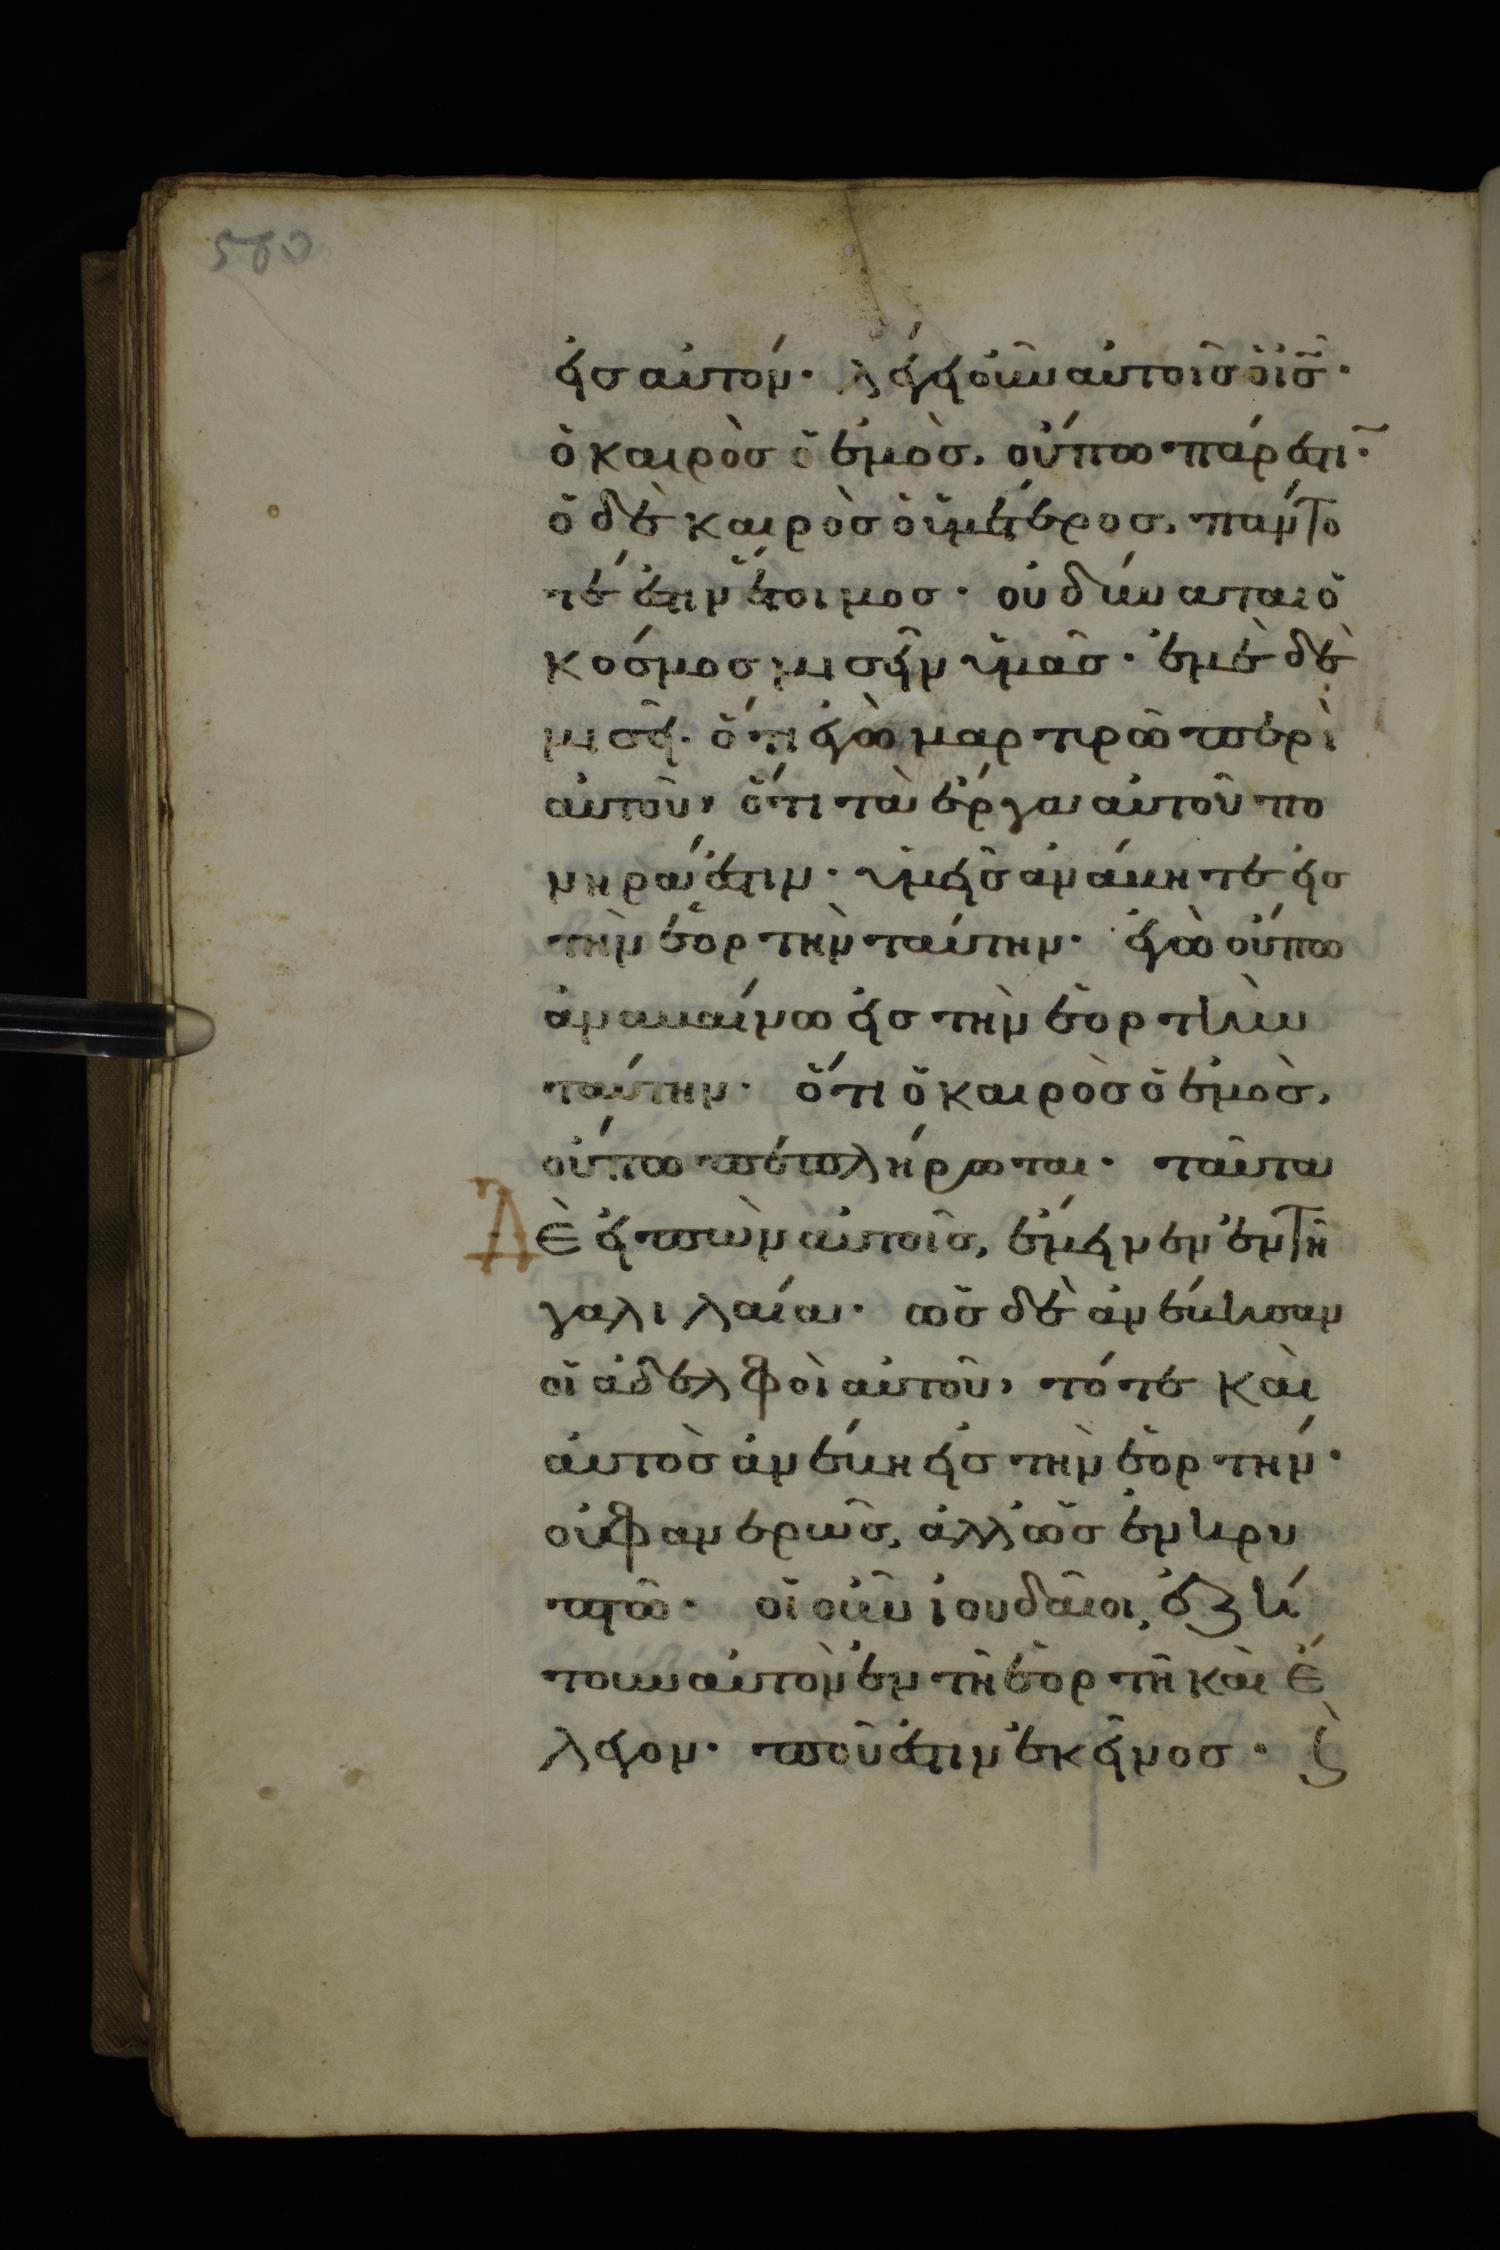 560
εἰς αὐτόν· λέγει οὖν αὐτοῖς ὁ ἰς̅·
ὁ καιρὸς ὁ ἐμὸς, οὔπω πάρεστι̅·
ὁ δὲ καιρὸς ὁ ὑμέτερος, πάντο
τέ ἐστιν ἕτοιμος· οὐ δύναται ὁ
κόσμος μισεῖν ὑμᾶς· ἐμὲ δὲ
μισεῖ· ὅτι ἐγὼ μαρτυρῶ περὶ
αὐτοῦ, ὅτι τὰ ἔργα αὐτοῦ πο
νηρά ἐστιν· ὑμεῖς ἀνάβητε εἰς
τὴν ἑορτὴν ταύτην· ἐγὼ οὔπω
ἀναβαίνω εἰς τὴν ἑορτὴν
ταύτην· ὅτι ὁ καιρὸς ὁ ἐμὸς,
οὔπω πεπλήρωται· ταῦτα
Δὲ εἰπὼν αὐτοῖς, ἔμεινεν ἐν τῆ
γαλιλαία· ὡς δὲ ἀνέβησαν
οἱ ἀδελφοὶ αὐτοῦ, τότε καὶ
αὐτὸς ἀνέβη εἰς τὴν ἑορτήν·
οὐ φανερῶς, ἀλλ ὡς ἐν κρυ
πτῶ· οἱ οὖν ἰουδαῖοι, ἐζή
τουν αὐτὸν ἐν τῆ ἑορτῆ καὶ ἔ
λεγον· ποῦ ἐστιν ἐκεῖνος· ϗ̀